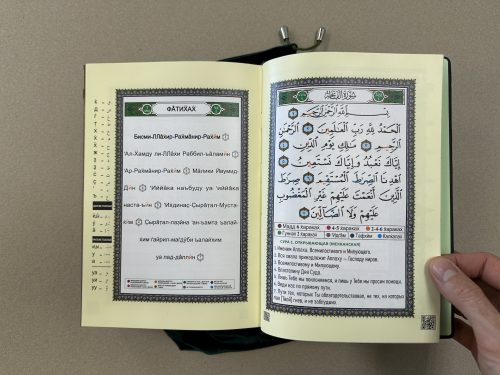 ФĀТИХ̣АХ
Бисми-ЛЛāхир-Рах̣мāнир-Рах̣ӣм
'Ал-Хамду ли-ЛЛāхи Раббил-ъāламӣн
'Ар-Рах̣мāнир-Рах̣ӣм Мāлики Йаумид-
Дӣн 'Иййāка наъбуду уа 'иййāка
наста-ъӣн 'Ихдинас-Сырāт̣ал-Муста-
к̣ӣм Сырāт̣ал-лаз̱ӣна 'анъамта ъалай-
хим г̣айрил-маг̣д̣ӯби ъалайхим
уа лад̣-д̣āллӣн
بِسْمِ اللَّهِ الرَّحْمَٰنِ الرَّحِيمِ
الْحَمْدُ لِلَّهِ رَبِّ الْعَالَمِينَ الرَّحْمَٰنِ
الرَّحِيمِ مَالِكِ يَوْمِ الدِّينِ
إِيَّاكَ نَعْبُدُ وَإِيَّاكَ نَسْتَعِينُ
اهْدِنَا الصِّرَاطَ الْمُسْتَقِيمَ صِرَاطَ
الَّذِينَ أَنْعَمْتَ عَلَيْهِمْ غَيْرِ الْمَغْضُوبِ
عَلَيْهِمْ وَلَا الضَّالِّينَ
Мадд 6 Хараках 4-5 хараках 2-4-6 хараках
Гуннах 2 хараках Идг̣āм Тафх̮ӣм Калк̣алах
СУРА 1. ОТКРЫВАЮЩАЯ (МЕККАНСКАЯ)
1. Именем Аллаха, Всемилостивого и Милующего.
2. Вся хвала принадлежит Аллаху — Господу миров.
3. Всемилостивому и Милующему.
4. Властелину Дня Суда.
5. Лишь Тебе мы поклоняемся, и лишь у Тебя мы просим помощи.
6. Веди нас по прямому пути.
7. Пути тех, которых Ты облагодетельствовал, не тех, на которых
пал [Твой] гнев, и не заблудших.